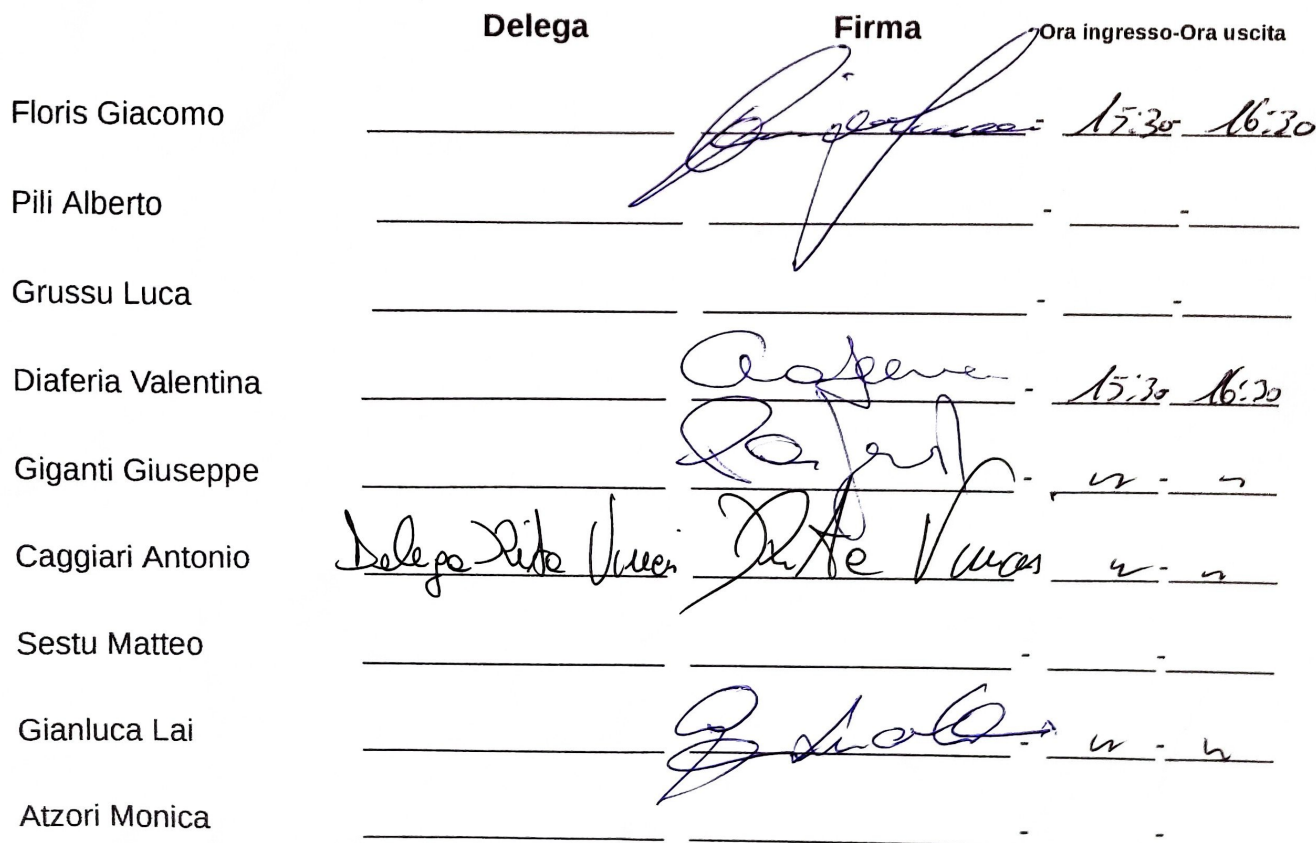 Delega Firma Ora ingresso-Ora uscita
Floris Giacomo - 15:30 16:30
Pili Alberto - -
Grussu Luca - -
Diaferia Valentina - 15:30 16:30
Giganti Giuseppe - -
Caggiari Antonio Delega Rita Vincis -
Sestu Matteo - -
Gianluca Lai - -
Atzori Monica - -